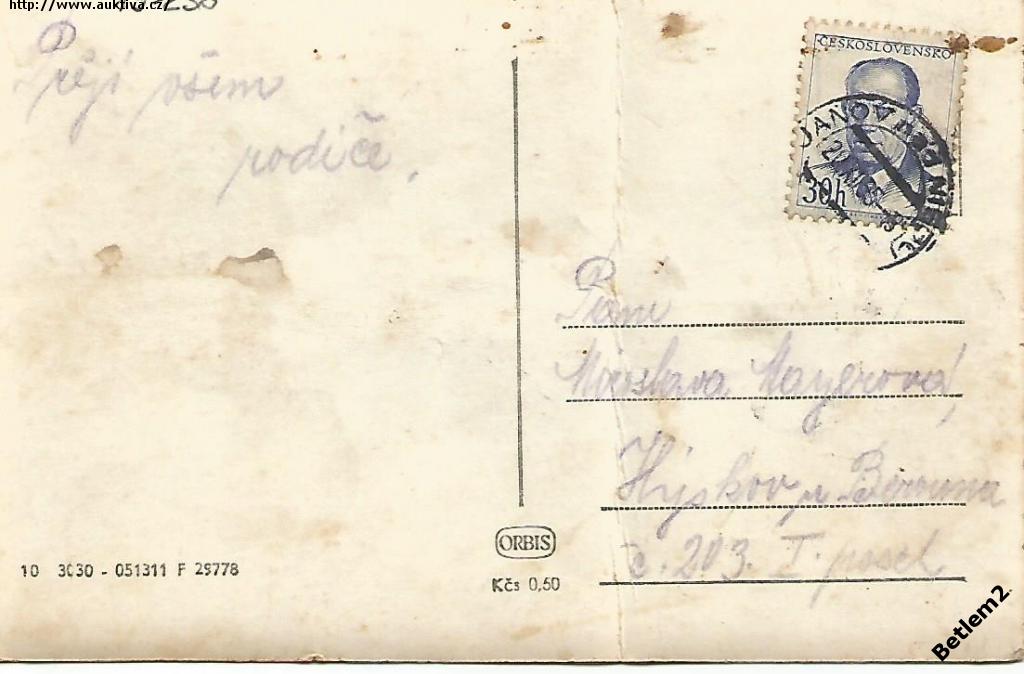 http://www.auktiva.cz
Přeji všem
rodiče.
ČESKOSLOVENSKO
30h
JANOV NAD NISOU
Paní
Miroslava Mayerová,
Hýskov u Berouna
č. 203. I. posch
ORBIS
Kčs 0,50
10 3030 - 051311 F 29778
Betlem2